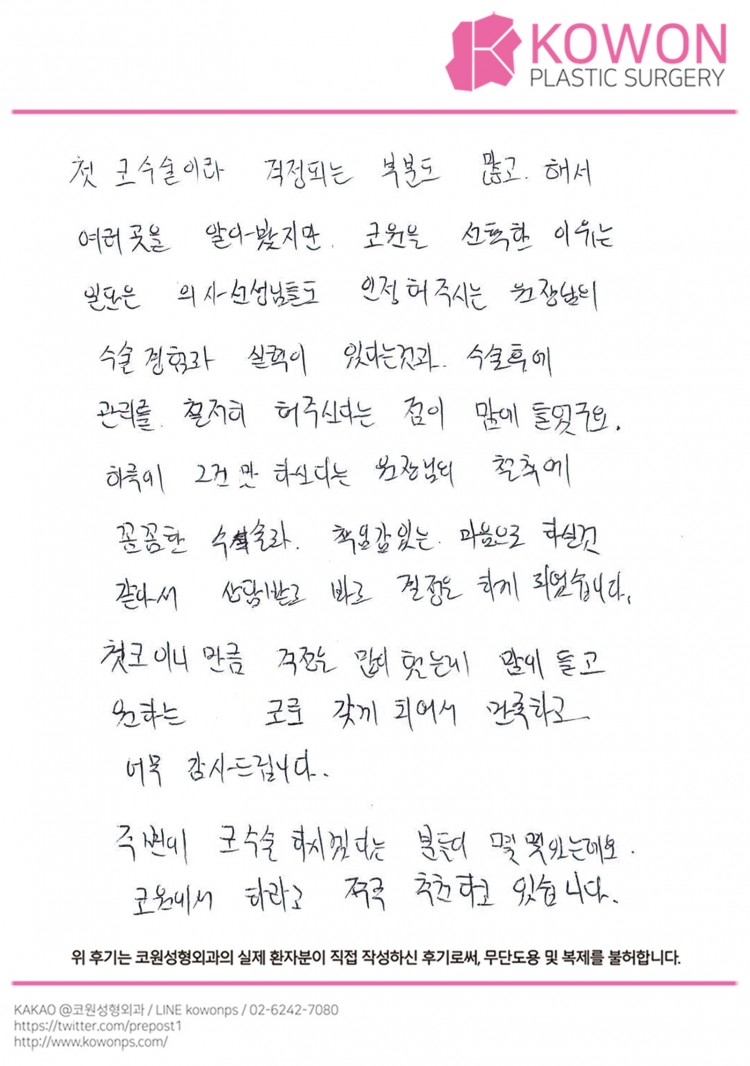 KOWON
PLASTIC SURGERY
첫 코수술이라 걱정되는 부분도 많고. 해서
여러곳을 알아봤지만. 코원을 선택한 이유는
일단은 의사선생님들도 인정해주시는 원장님의
수술경험과 실력이 있다는것과. 수술후에
관리를 철저히 해주신다는 점이 맘에 들었구요.
하루에 2건만 하신다는 원장님의 철칙에
꼼꼼한 수술과. 책임감있는. 마음으로 하실것
같아서 상담받고 바로 결정을 하게 되었습니다.
첫코이니 만큼 걱정은 많이 했는데 맘에 들고
원하는 코를 갖게 되어서 만족하고
너무 감사드립니다.
주변에 코수술 하시겠다는 분들이 몇몇있는데요.
코원에서 하라고 적극 추천하고 있습니다.
위 후기는 코원성형외과의 실제 환자분이 직접 작성하신 후기로써, 무단도용 및 복제를 불허합니다.
KAKAO @코원성형외과 / LINE kowonps / 02-6242-7080
https://twitter.com/prepost1
http://www.kowonps.com/